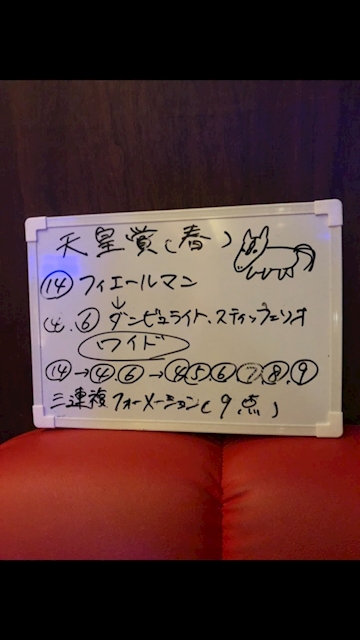 天皇賞(春)
⑭ フィエールマン
↓
④.⑥ ダンビュライト、スティッフェリオ
ワイド
⑭→④.⑥→④⑤⑥⑦⑧.⑨
三連複フォーメーション(9点)